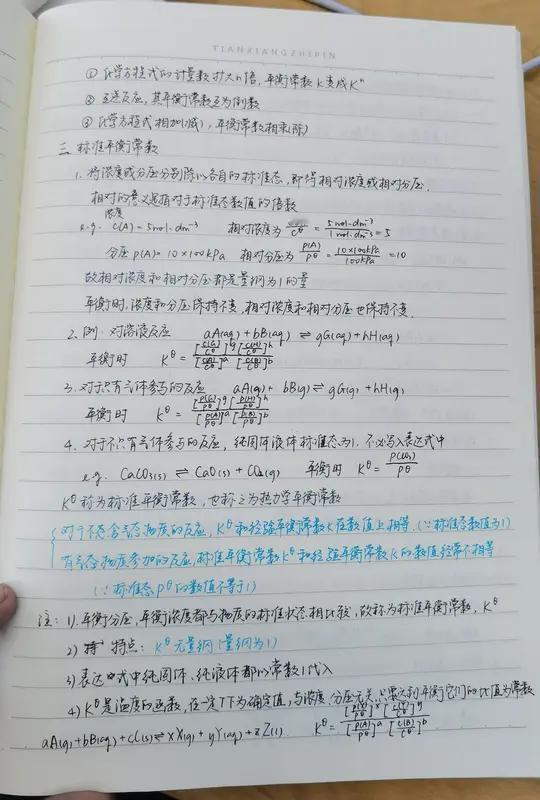 TIANXIANGZHIPIN
① 化学方程式的计量数扩大n倍，平衡常数K变成Kⁿ
② 互逆反应，其平衡常数互为倒数
③ 化学方程式相加(减)，平衡常数相乘(除)
三. 标准平衡常数
1. 将浓度或分压分别除以各自的标准态，即得相对浓度或相对分压.
相对的意义是相对于标准态数值的倍数
浓度
e.g. c(A)=5mol·dm⁻³ 相对浓度为 /c^θ = 5mol·dm⁻³/1mol·dm⁻³ = 5
分压 p(A)=10×100kPa 相对分压为 p(A)/p^θ = 10×100kPa/100kPa = 10
故相对浓度和相对分压都是量纲为1的量
平衡时，浓度和分压保持不变，相对浓度和相对分压也保持不变.
2. 例：对溶液反应 aA(aq)+bB(aq) ⇌ gG(aq)+hH(aq)
平衡时 K^θ = [c(G)/c^θ]^g [c(H)/c^θ]^h / [c(A)/c^θ]^a [c(B)/c^θ]^b
3. 对于只有气体参与的反应 aA(g)+bB(g) ⇌ gG(g)+hH(g)
平衡时 K^θ = [p(G)/p^θ]^g [p(H)/p^θ]^h / [p(A)/p^θ]^a [p(B)/p^θ]^b
4. 对于不只有气体参与的反应，纯固体液体标准态为1，不必写入表达式中
e.g. CaCO₃(s) ⇌ CaO(s)+CO₂(g) 平衡时 K^θ = p(CO₂)/p^θ
K^θ称为标准平衡常数，也称之为热力学平衡常数
对于不含气态物质的反应，K^θ和经验平衡常数K在数值上相等. (∵标准态数值为1)
有气态物质参加的反应，标准平衡常数K^θ和经验平衡常数K的数值经常不相等
(∵标准态p^θ的数值不等于1)
注：1) 平衡分压，平衡浓度都与物质的标准状态相比较，故称为标准平衡常数，K^θ
2) 特点：K^θ无量纲(量纲为1)
3) 表达式中纯固体、纯液体都以常数1代入
4) K^θ是温度的函数，在一定T下为确定值，与浓度、分压无关，只要达到平衡它们的比值为常数
aA(g)+bB(aq)+cC(s) ⇌ xX(g)+yY(aq)+zZ(l) K^θ = [p(X)/p^θ]^x [c(Y)/c^θ]^y / [p(A)/p^θ]^a [c(B)/c^θ]^b